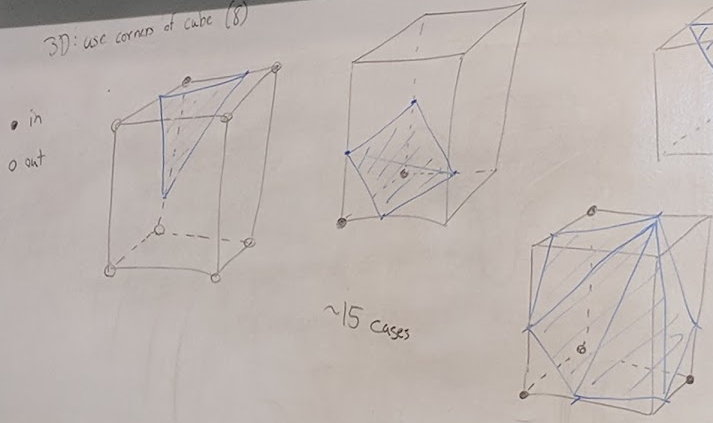 3D: use corners of cube (8)
in
out
~15 cases